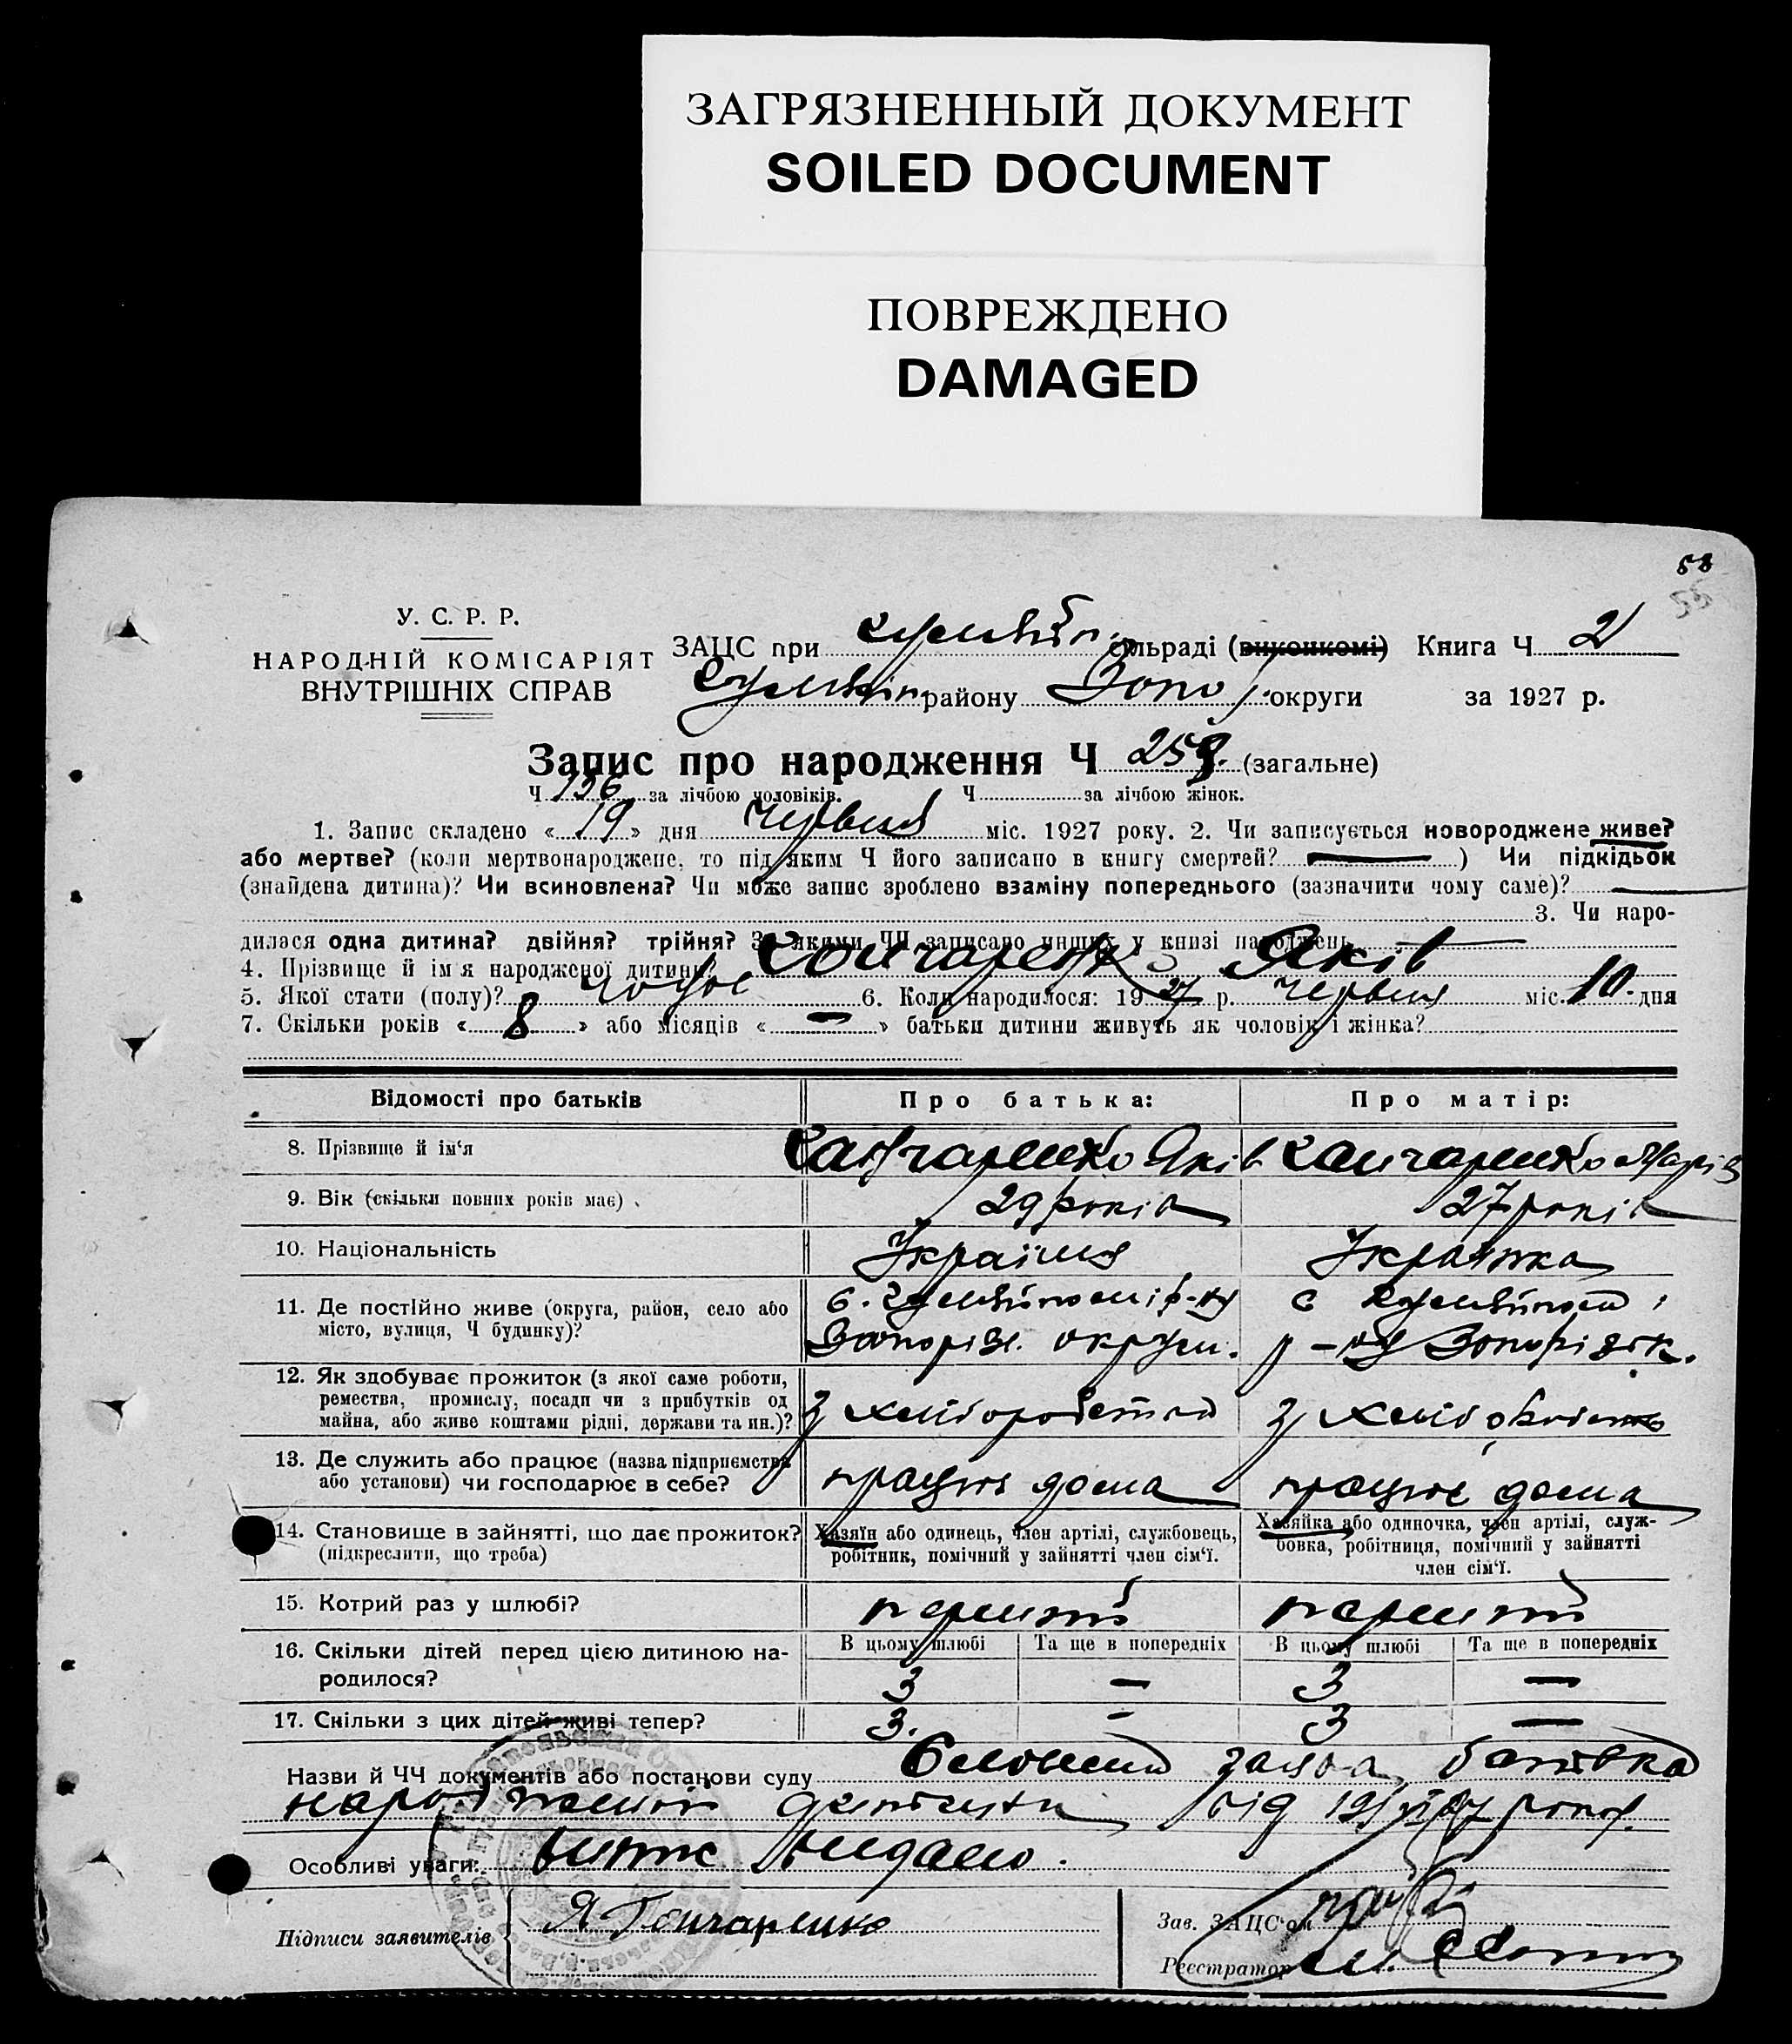 ЗАГРЯЗНЕННЫЙ ДОКУМЕНТ
SOILED DOCUMENT
ПОВРЕЖДЕНО
DAMAGED
58
55
У. С. Р. Р.
НАРОДНІЙ КОМІСАРІЯТ
ВНУТРІШНІХ СПРАВ
ЗАЦС при сільраді (виконкомі) Книга Ч 2
району Запо округи за 1927 р.
Запис про народження Ч 259. (загальне)
Ч 136 за лічбою чоловіків. Ч за лічбою жінок.
1. Запис складено « 19 » дня Червня міс. 1927 року. 2. Чи записується новороджене живе?
або мертве? (коли мертвонароджене, то під яким Ч його записано в книгу смертей? — ) Чи підкідьок
(знайдена дитина)? Чи всиновлена? Чи може запис зроблено взаміну попереднього (зазначити чому саме)? —
3. Чи наро-
дилася одна дитина? двійня? трійня? З якими ЧЧ записано инших у книзі народжень —
4. Прізвище й імʼя народженої дитини? Гончаренко Яків
5. Якої стати (полу)? 6. Коли народилося: 19 27 р. Червня міс. 10 дня
7. Скільки років « 8 » або місяців « — » батьки дитини живуть як чоловік і жінка?
Відомості про батьків Про батька: Про матір:
8. Прізвище й ім'я Ганчаренко Яків Ганчаренко Марія
9. Вік (скільки повних років має) 29 років 27 років
10. Національність Українец Українка
11. Де постійно живе (округа, район, село або
місто, вулиця, Ч будинку)? Запоріз. округи. р-ну Запорізьк.
12. Як здобуває прожиток (з якої саме роботи,
ремества, промислу, посади чи з прибутків од
майна, або живе коштами рідні, держави та ин.)? З хліборобства З хліборобства
13. Де служить або працює (назва підприємства
або установи) чи господарює в себе? працює дома працює дома
14. Становище в зайнятті, що дає прожиток?
(підкреслити, що треба)
Хазяїн або одинець, член артілі, службовець,
робітник, помічний у зайнятті член сім'ї.
Хазяйка або одиночка, член артілі, служ-
бовка, робітниця, помічний у зайнятті
член сім'ї.
15. Котрий раз у шлюбі? перший перший
16. Скільки дітей перед цією дитиною на-
родилося?
В цьому шлюбі Та ще в попередніх В цьому шлюбі Та ще в попередніх
3 — 3 —
17. Скільки з цих дітей живі тепер? 3. - 3 —
Назви й ЧЧ документів або постанови суду Словесна заява батька
народженої дитини від 19/VI 27 року.
Особливі уваги: Витяг видано.
Підписи заявителів Я Гончаренко
Зав. ЗАЦС'ом
Реєстратор